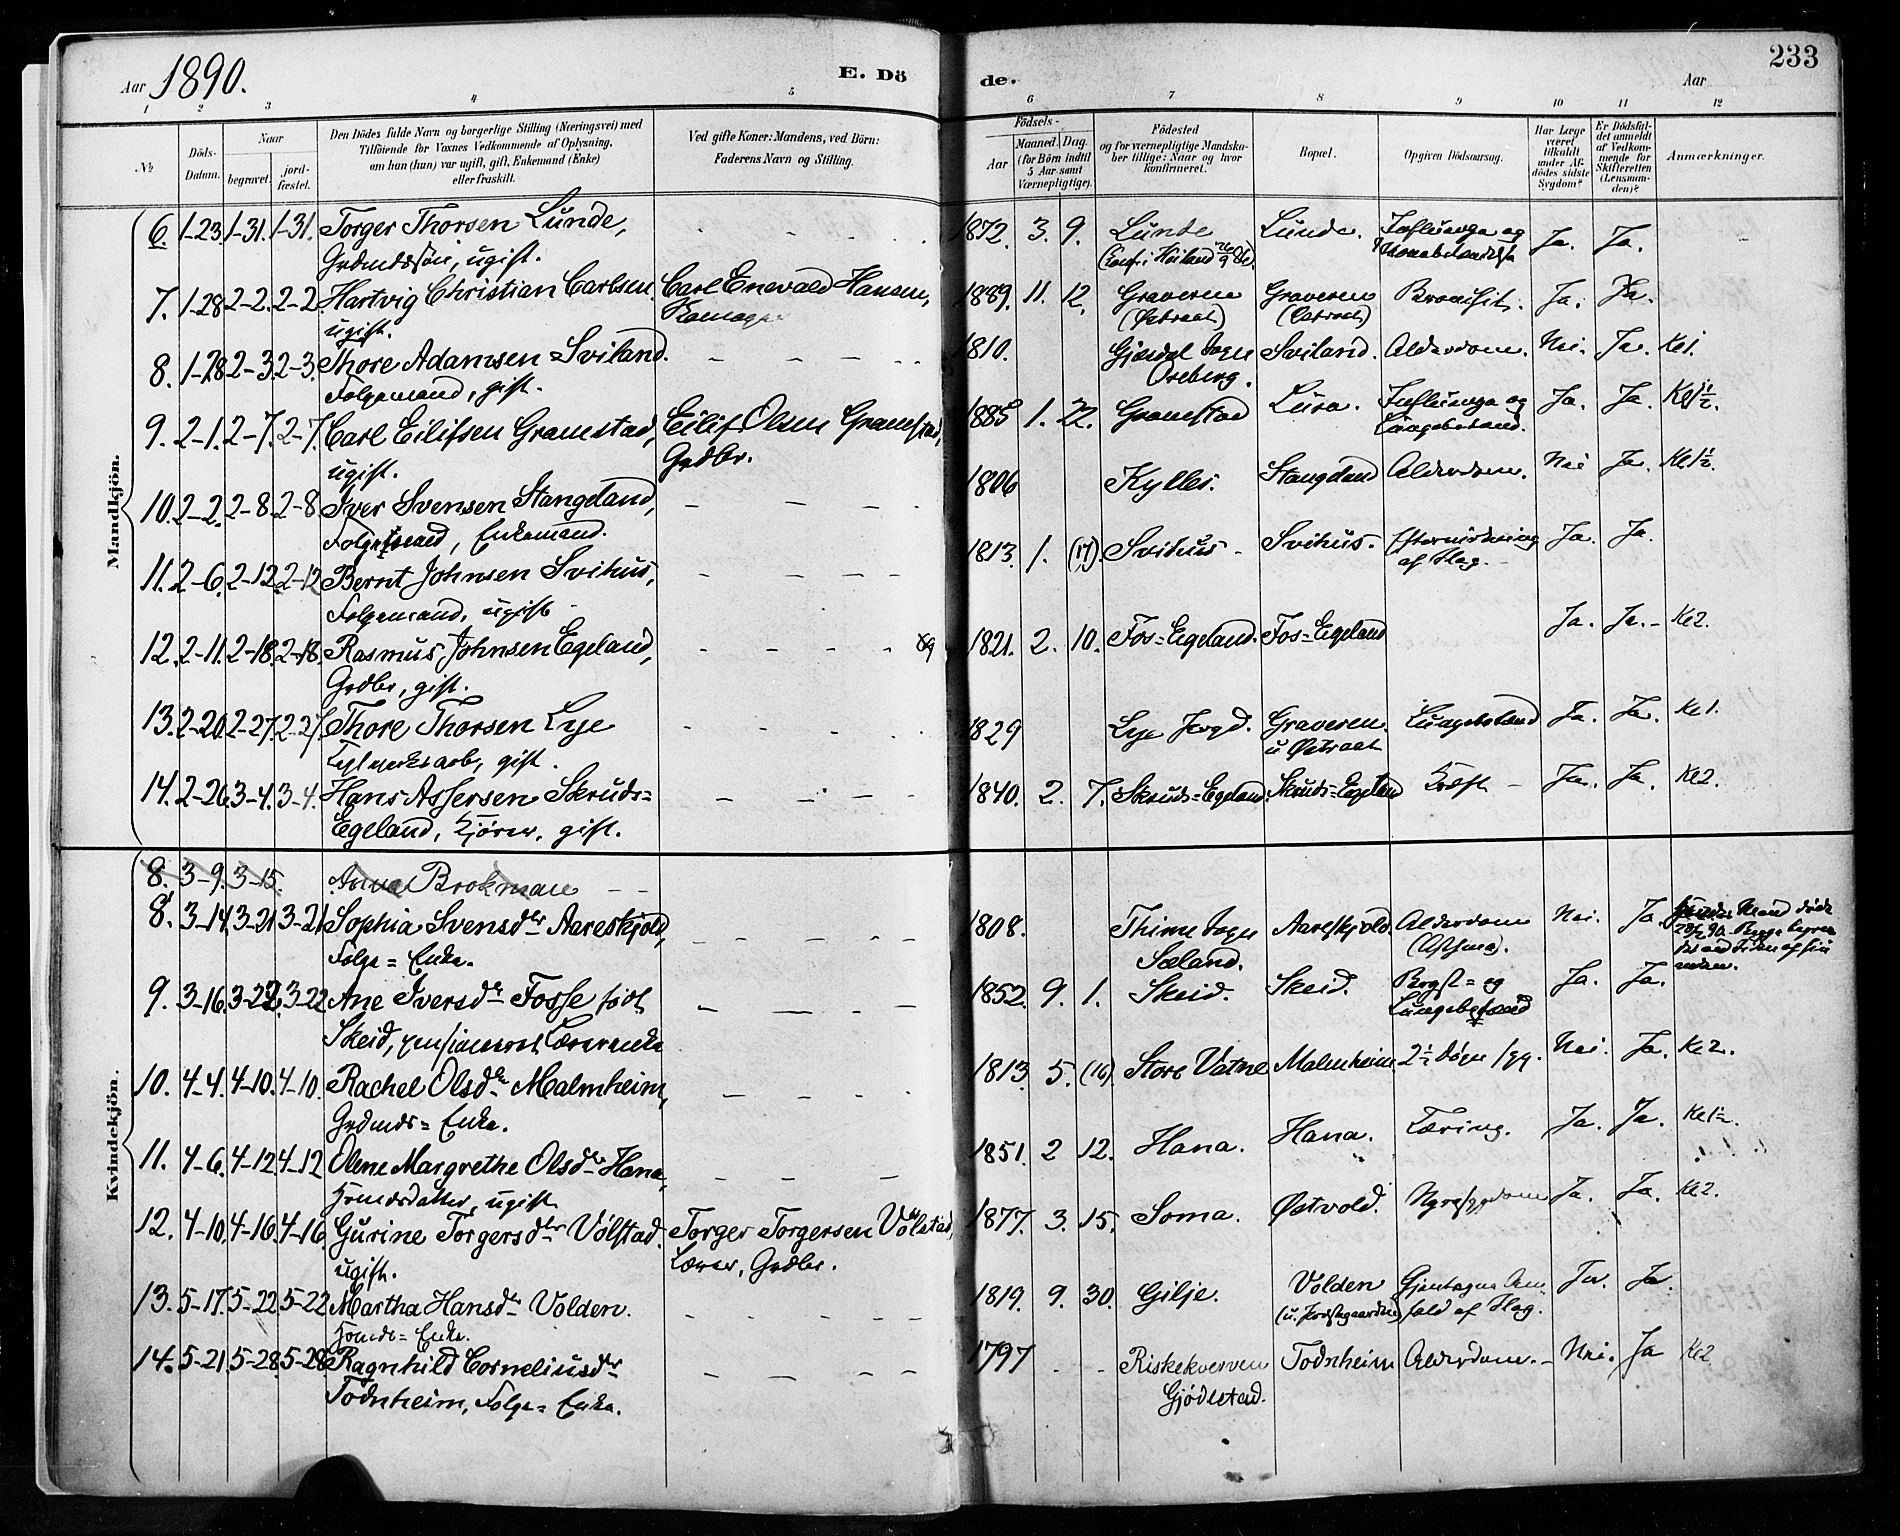 Aar 1890.
E. Dö
de.
Aar
233
1 2 3 4 5 6 7 8 9 10 11 12
No
Döds-Datum.
Naar
begravet.
jord-fæstet.
Den Dödes fulde Navn og borgerlige Stilling (Næringsvei) med
Tilföiende for Voxnes Vedkommende af Oplysning,
om han (hun) var ugift, gift, Enkemand (Enke)
eller fraskilt.
Ved gifte Koner: Mandens, ved Börn:
Faderens Navn og Stilling.
Födsels-
Aar
Maaned. Dag.
(for Börn indtil
5 Aar samt
Værnepligtige).
Födested
og for værnepligtige Mandska-
ber tillige: Naar og hvor
konfirmeret.
Bopæl.
Opgiven Dödsaarsag.
Har Læge
været
tilkaldt
under Af-
dödes sidste
Sygdom?
Er Dödsfal-
det anmeldt
af Vedkom-
mende for
Skifteretten
(Lensman-
den)?
Anmærkninger.
Mandkjön.
6. 1-23. 1-31. 1-31. Torger Thorsen Lunde, 1872. 3. 9. Lunde Lunde. Influenza og Ja. Ja.
Grdmdssön, ugift.
7. 1-28 2-2. 2-2 Hartvig Christian Carlsen, Carl Enevald Hansen, 1889. 11. 12. Graveren Graveren Bronchit. Ja. Ja.
ugift. (Østraat) (Østraat)
8. 1-28 2-3. 2-3. Thore Adamsen Sviland. 1810. Gjesdal Sogn Sviland. Alderdom. Nei. Ja. Kl 1.
Folgemand, gift. Oseberg.
9. 2-1. 2-7. 2-7. Carl Eilifsen Gramstad, Eilif Olsen Gramstad, 1885 1. 22. Gramstad Lura. Influenza og Ja. Ja. Kl 1½.
ugift. Grdbr. Lungebetænd.
10. 2-2. 2-8 2-8 Iver Svensen Stangeland, 1806 Kylles. Stangeland Alderdom. Nei Ja. Kl 1½.
Folgemand, Enkemand.
11. 2-6. 2-12. 2-12 Bernt Johnsen Svihus, 1813. 1. (17). Svihus Svihus. Eftervirkning Ja. Ja.
Folgemand, ugift af Slag.
12. 2-11. 2-18. 2-18. Rasmus Johnsen Egeland, 1821. 2. 10. Fos=Egeland. Fos=Egeland Ja. Ja. Kl 2.
Grdbr, gift.
13. 2-20. 2-27. 2-27. Thore Thorsen Lye 1829 Lye Graveren Lungebetænd Ja. Ja. Kl 1.
gift. u. Østraat
14. 2-26. 3-4. 3-4. Hans Assersen Skruds= 1840. 2. 7. Skruds=Egeland. Skruds=Egeland Kræft Ja. Ja. Kl 2.
Egeland, gift.
Kvindekjön.
8. 3-9. 3-15. Anna Brokman
8. 3-14. 3-21 3-21 Sophia Svensdtr Aareskjold, 1808. Thime Sogn Aareskjold. Alderdom Nei. Ja
Folge=Enke. Sæland. (Asthma).
9. 3-16. 3-22. 3-22 Ane Iversdtr Fosse födt 1852. 9. 1. Skeid. Skeid. Bryst= og Ja. Ja.
Skeid, pensioneret Lærerenke Lungebetænd
10. 4-4. 4-10. 4-10. Rachel Olsdtr Malmheim, 1813. 5. (16). Store Vatne Malmheim 2½ Døgn syg. Nei. Ja. Kl 2.
Grdmds=Enke.
11. 4-6. 4-12. 4-12 Olene Margrethe Olsdtr Hana, 1851. 2 12. Hana. Hana. Tæring. Ja. Ja. Kl 1½.
ugift
12. 4-10. 4-16. 4-16. Gurine Torgersdtr Vølstad. Torger Torgersen Vølstad, 1877. 3. 15. Soma. Østvold. Nyresygdom Ja. Ja. Kl 2.
ugift. Lærer, Grdbr.
13. 5-17. 5-22. 5-22 Martha Hansdtr Volden. 1819. 9. 30. Gilje. Volden Ja. Ja.
Enke. af Slag.
14. 5-21. 5-28. 5-28 Ragnhild Corneliusdtr 1797 Riskekverven Todnheim Alderdom. Nei. Ja Kl 2
Todnheim, Folge=Enke. Gjødestad.